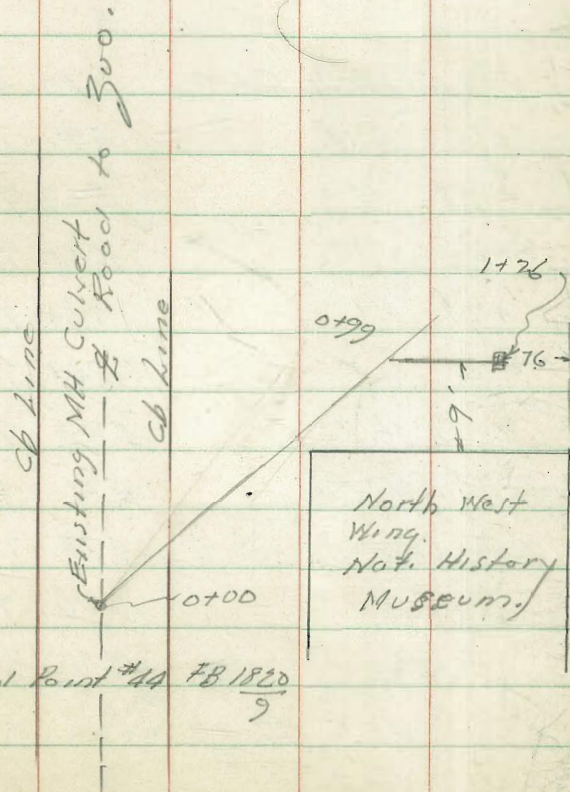 Cb Line
Existing MH. Culvert
℄ Road to Zoo.
Cb Line
0+00
0+99
1+26
76
9'
North West
Wing.
Nat. History
Museum.
Point #44 FB 1820
9